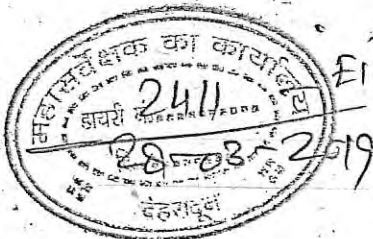 महासर्वेक्षक का कार्यालय
E1
डायरी 2411
28-03-2019
देहरादून